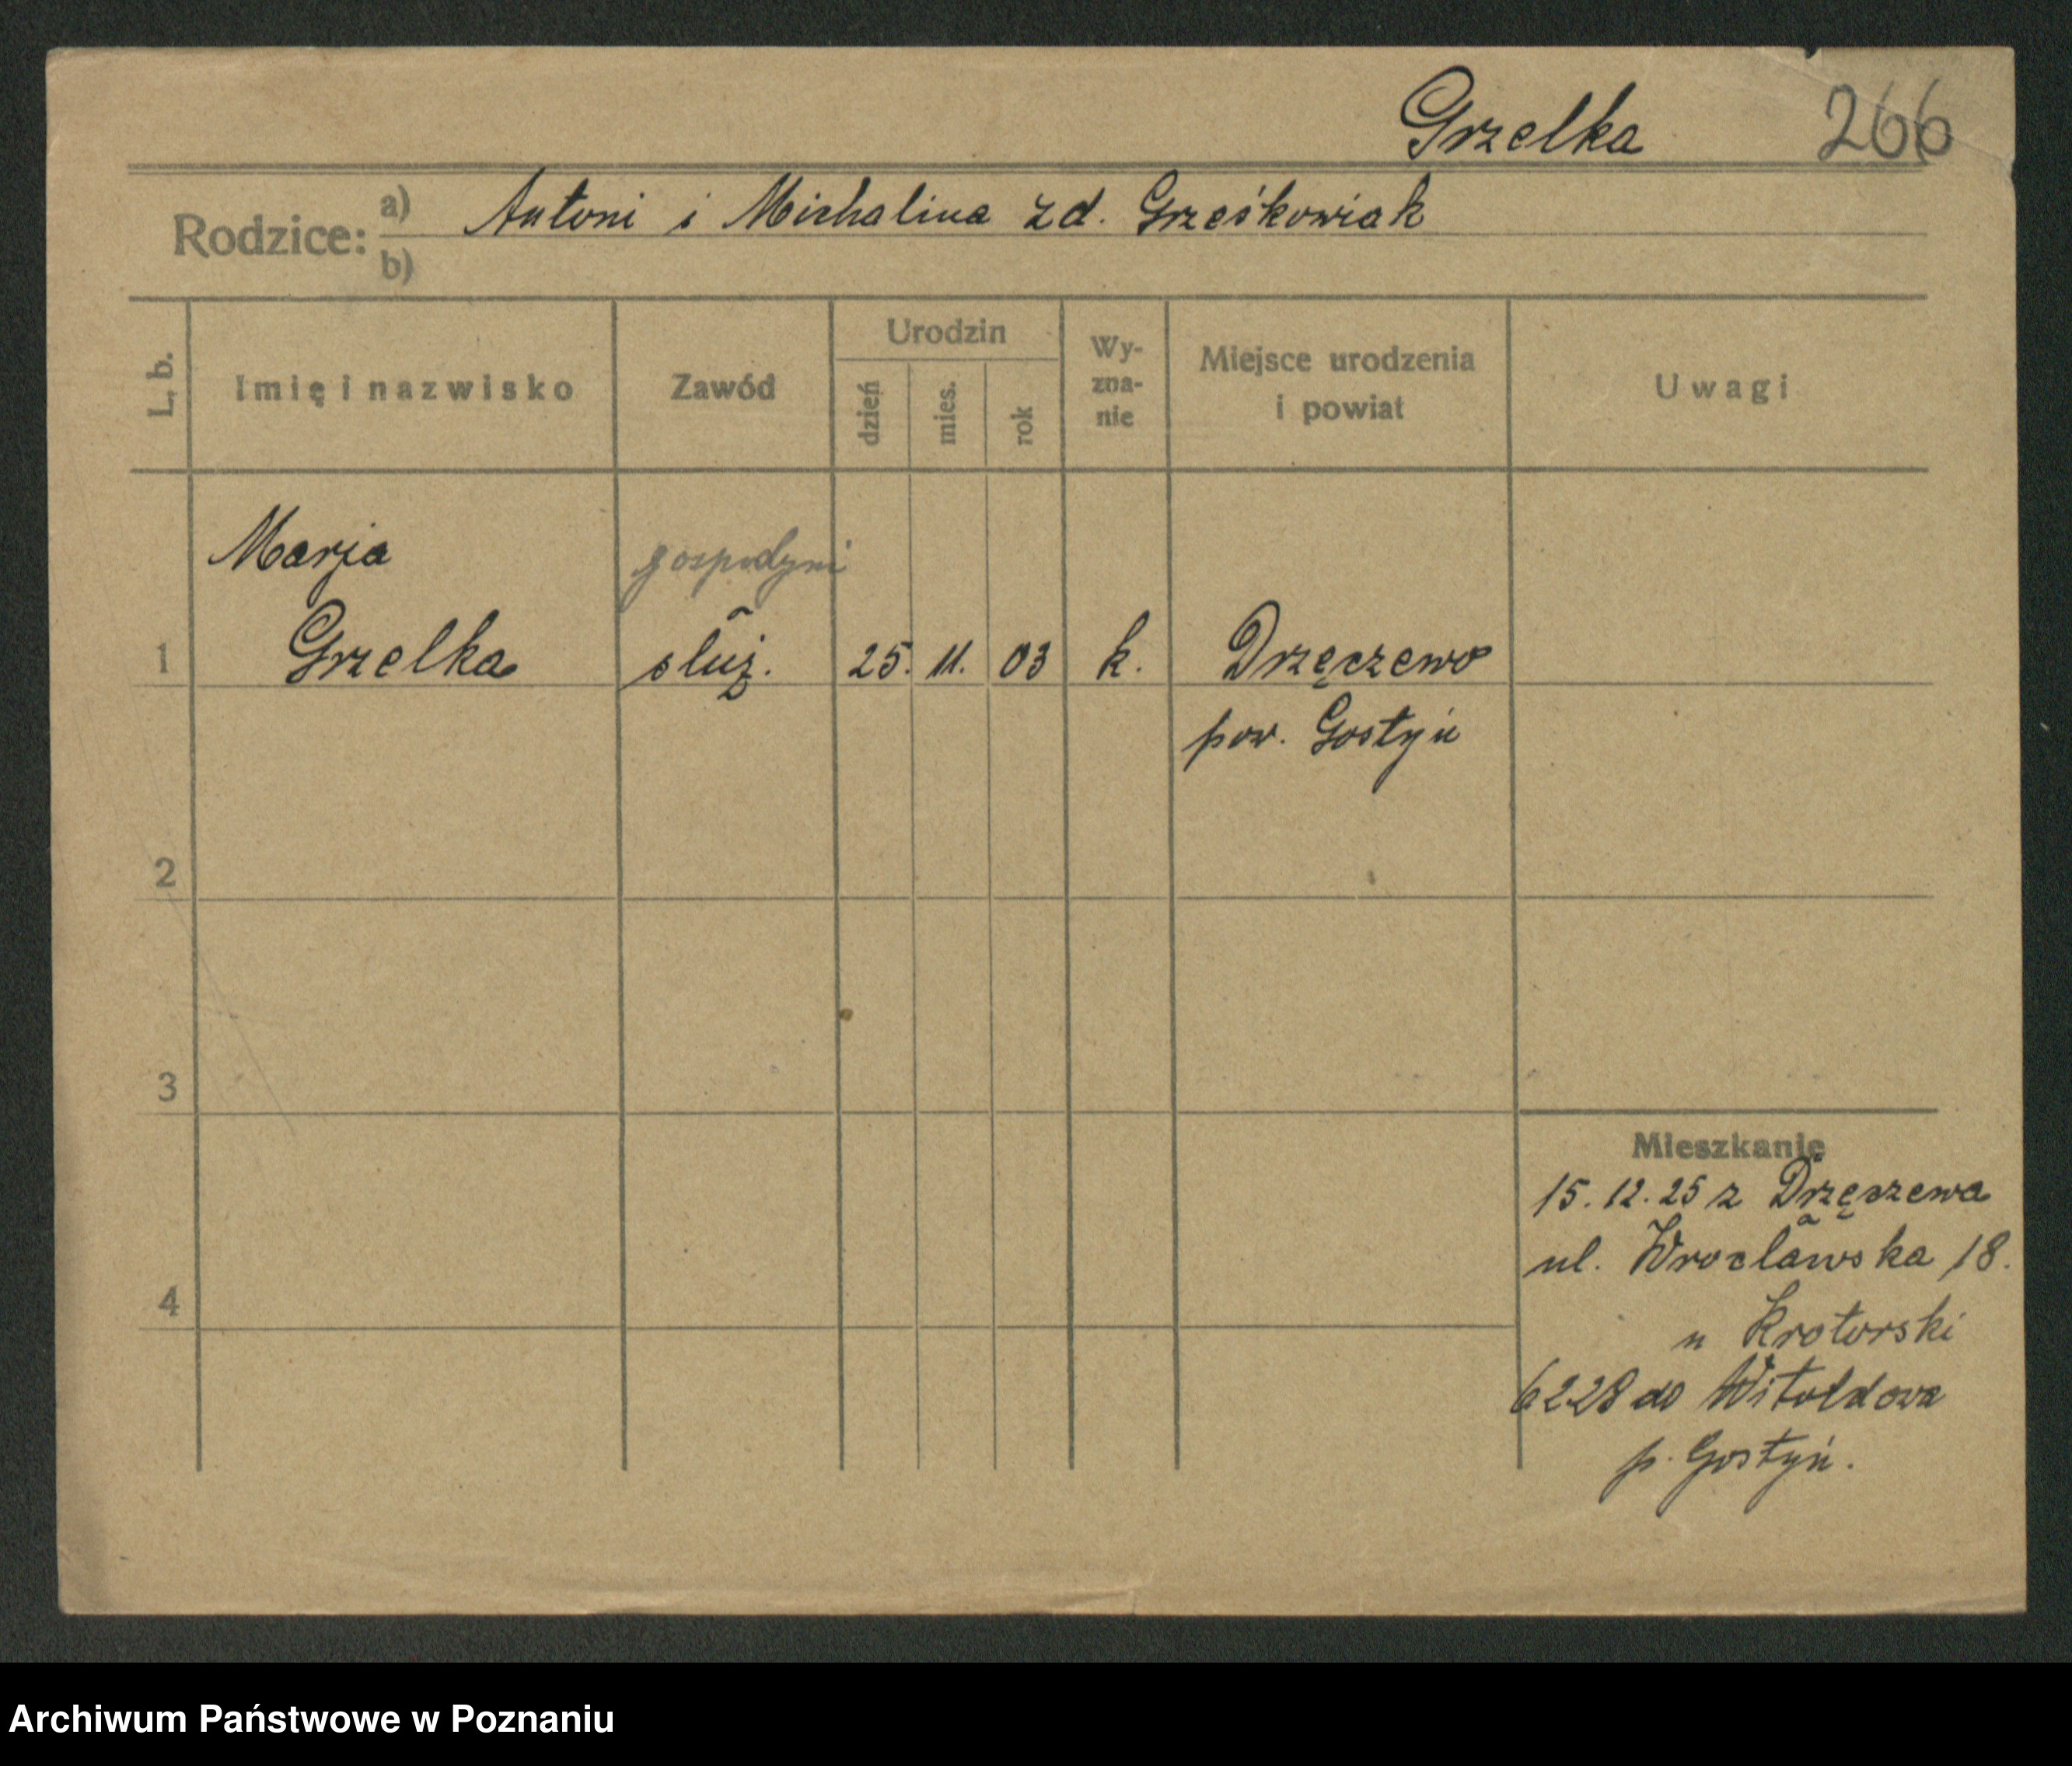 Grzelka 266
Rodzice: a) Antoni i Michalina zd. Grześkowiak
b)
L. b. Imię i nazwisko Zawód Urodzin dzień mies. rok Wyznanie Miejsce urodzenia i powiat Uwagi
Marja gospodyni
1 Grzelka służ. 25. 11. 03 k. Drzęczewo
pow. Gostyń
2
3
Mieszkanie
15.12.25 z Drzęczewa
ul. Wrocławska 18.
4
u
6228 do Witoldowa
p. Gostyń.
Archiwum Państwowe w Poznaniu